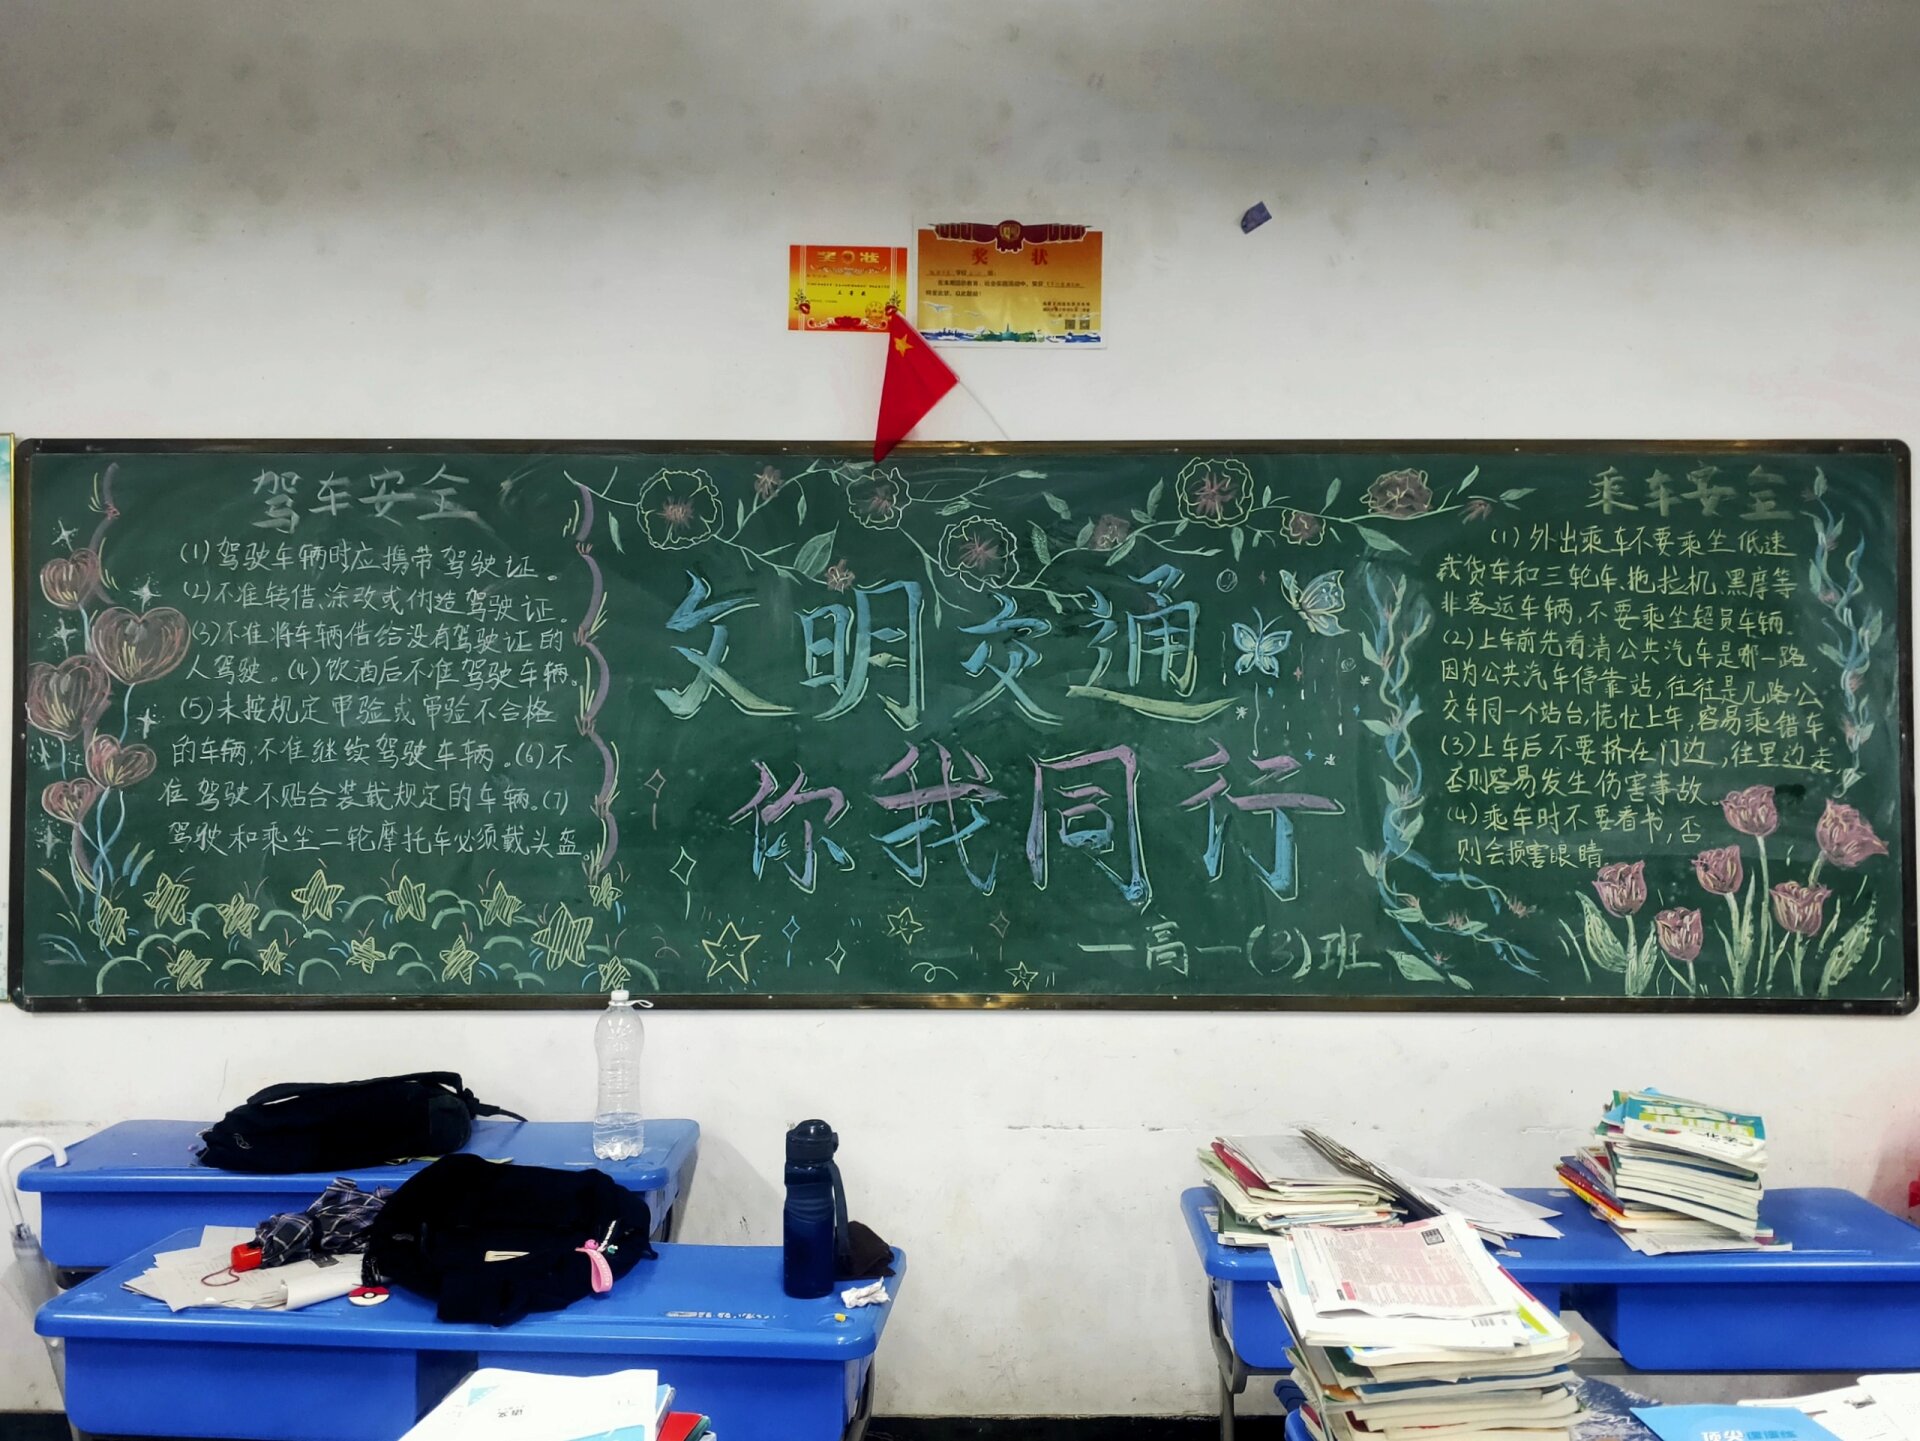 奖状
奖状
驾车安全
(1)驾驶车辆时应携带驾驶证。
(2)不准转借、涂改或伪造驾驶证。
(3)不准将车辆借给没有驾驶证的
人驾驶。(4)饮酒后不准驾驶车辆。
(5)未按规定审验或审验不合格
的车辆,不准继续驾驶车辆。(6)不
准驾驶不贴合装载规定的车辆。(7)
驾驶和乘坐二轮摩托车必须戴头盔。
文明交通
你我同行
一高一(3)班
乘车安全
(1)外出乘车不要乘坐低速
载货车和三轮车、拖拉机、黑摩等
非客运车辆,不要乘坐超员车辆.
(2)上车前先看清公共汽车是哪一路,
因为公共汽车停靠站,往往是几路公
交车同一个站台,慌忙上车,容易乘错车。
(3)上车后不要挤在门边,往里边走,
否则容易发生伤害事故.
(4)乘车时不要看书,否
则会损害眼睛.
化学
语文
顶尖课课练